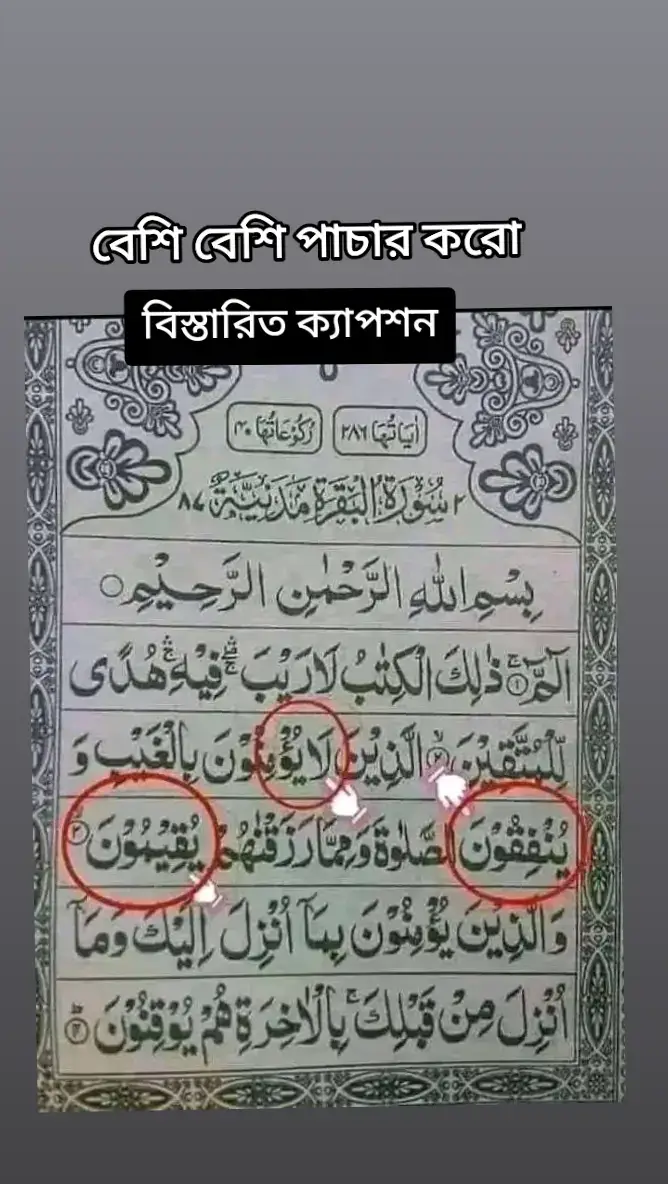 বেশি বেশি পাচার করো
বিস্তারিত ক্যাপশন
اٰيَاتُهَا ٢٨٦ رُكُوْعَاتُهَا ٤٠
٢ سُوْرَةُ الْبَقَرَةِ مَدَنِيَّةٌ ٨٧
بِسْمِ اللّٰهِ الرَّحْمٰنِ الرَّحِيْمِ
الٓمّٓ ۚ ١ ذٰلِكَ الْكِتٰبُ لَا رَيْبَ ۛ فِيْهِ ۛ هُدًى
لِّلْمُتَّقِيْنَ ۙ ٢ الَّذِيْنَ لَا يُؤْمِنُوْنَ بِالْغَيْبِ وَ
يُنْفِقُوْنَ الصَّلٰوةَ وَمِمَّا رَزَقْنٰهُمْ يُقِيْمُوْنَ ٣
وَالَّذِيْنَ يُؤْمِنُوْنَ بِمَآ اُنْزِلَ اِلَيْكَ وَمَآ
اُنْزِلَ مِنْ قَبْلِكَ ۚ بِالْاٰخِرَةِ هُمْ يُوْقِنُوْنَ ؕ ٤